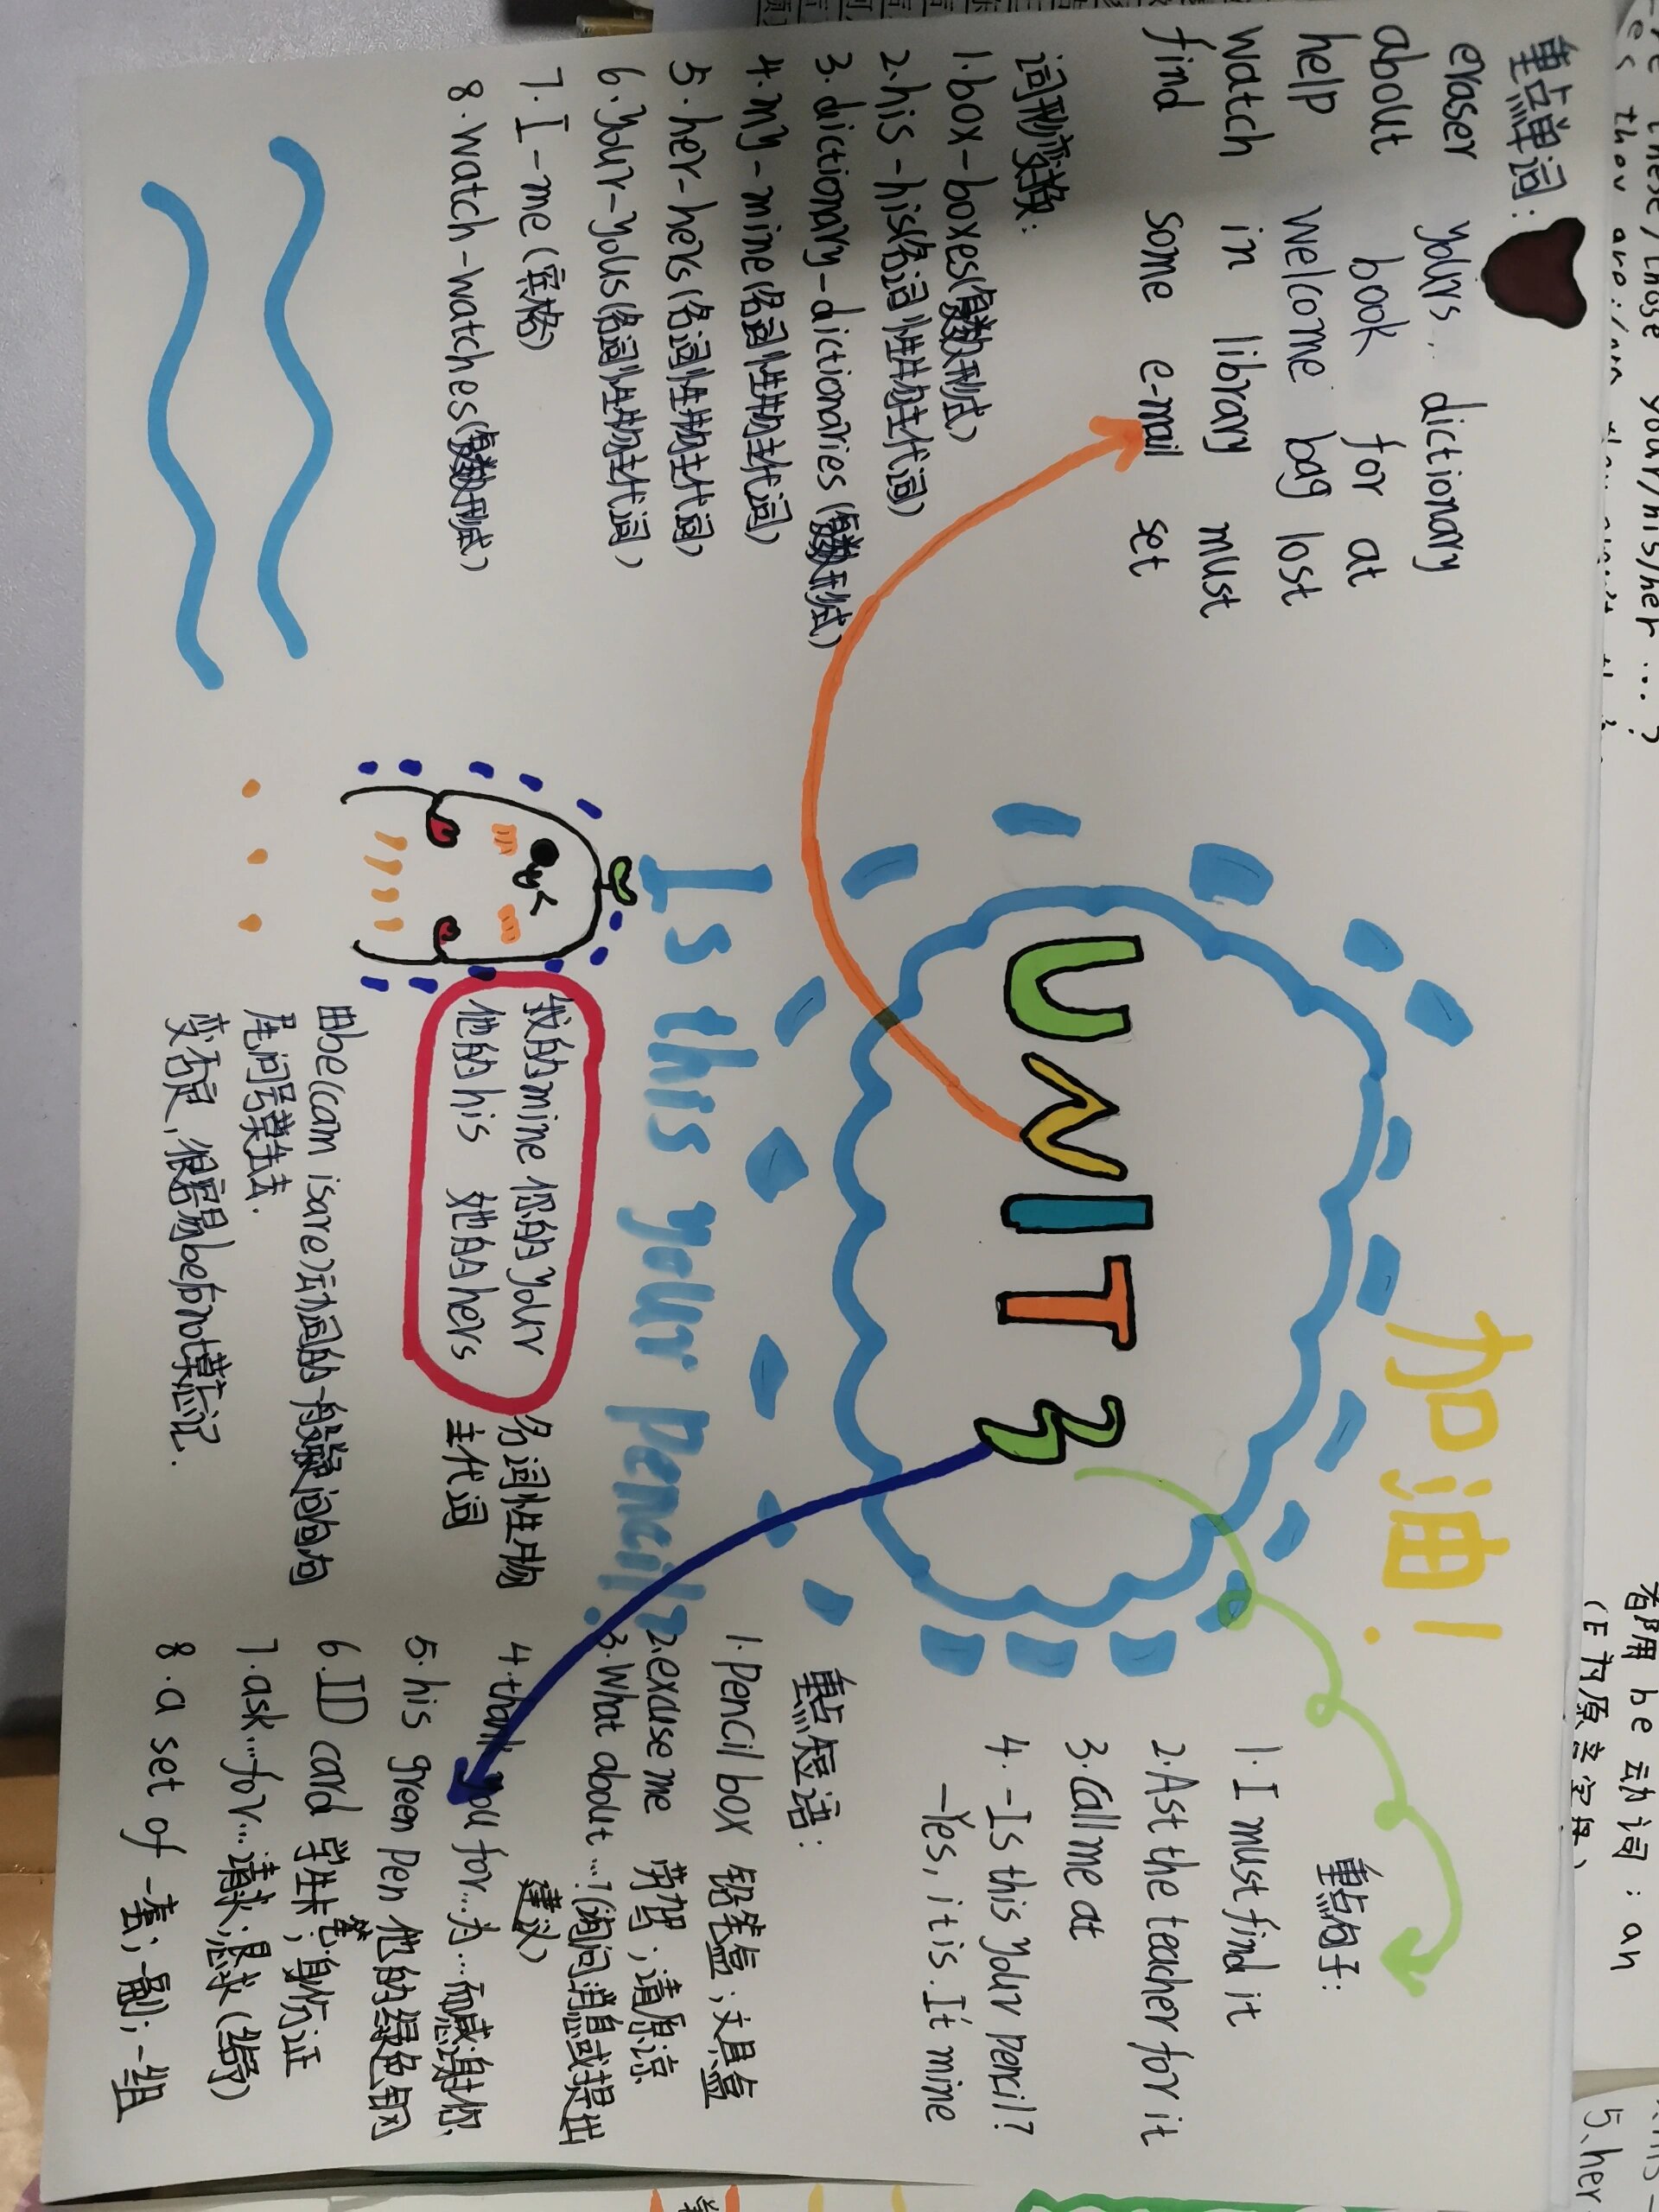 重点单词:
eraser yours dictionary
about book for at
help welcome bag lost
watch in library must
find some e-mail set
词形变换:
1.box-boxes(复数形式)
2.his-his(名词性物主代词)
3.dictionary-dictionaries(复数形式)
4.my-mine(名词性物主代词)
5.her-hers(名词性物主代词)
6.your-yous(名词性物主代词)
7.I-me(宾格)
8.watch-watches(复数形式)
加油!
UNIT 3
Is this your pencil?
我的mine 你的your
他的his 她的hers
名词性物
主代词
由be(am is are)动词的一般疑问句句
尾问号莫丢去.
变否定,很容易be后not莫忘记.
重点句子:
1.I must find it
2.Ast the teacher for it
3.Call me at
4.-Is this your pencil?
-Yes, it is. It mine
重点短语:
1.pencil box 铅笔盒;文具盒
2.excuse me 劳驾;请原谅
3.What about...?(询问消息或提出
建议)
4.thank you for...为...而感谢你
5.his green pen 他的绿色钢
笔
6.ID card 学生卡;身份证
7.ask...for...请求;恳求(给予)
8.a set of 一套;一副;一组
your/his/her...?
有隔 be 动词: an
5、her